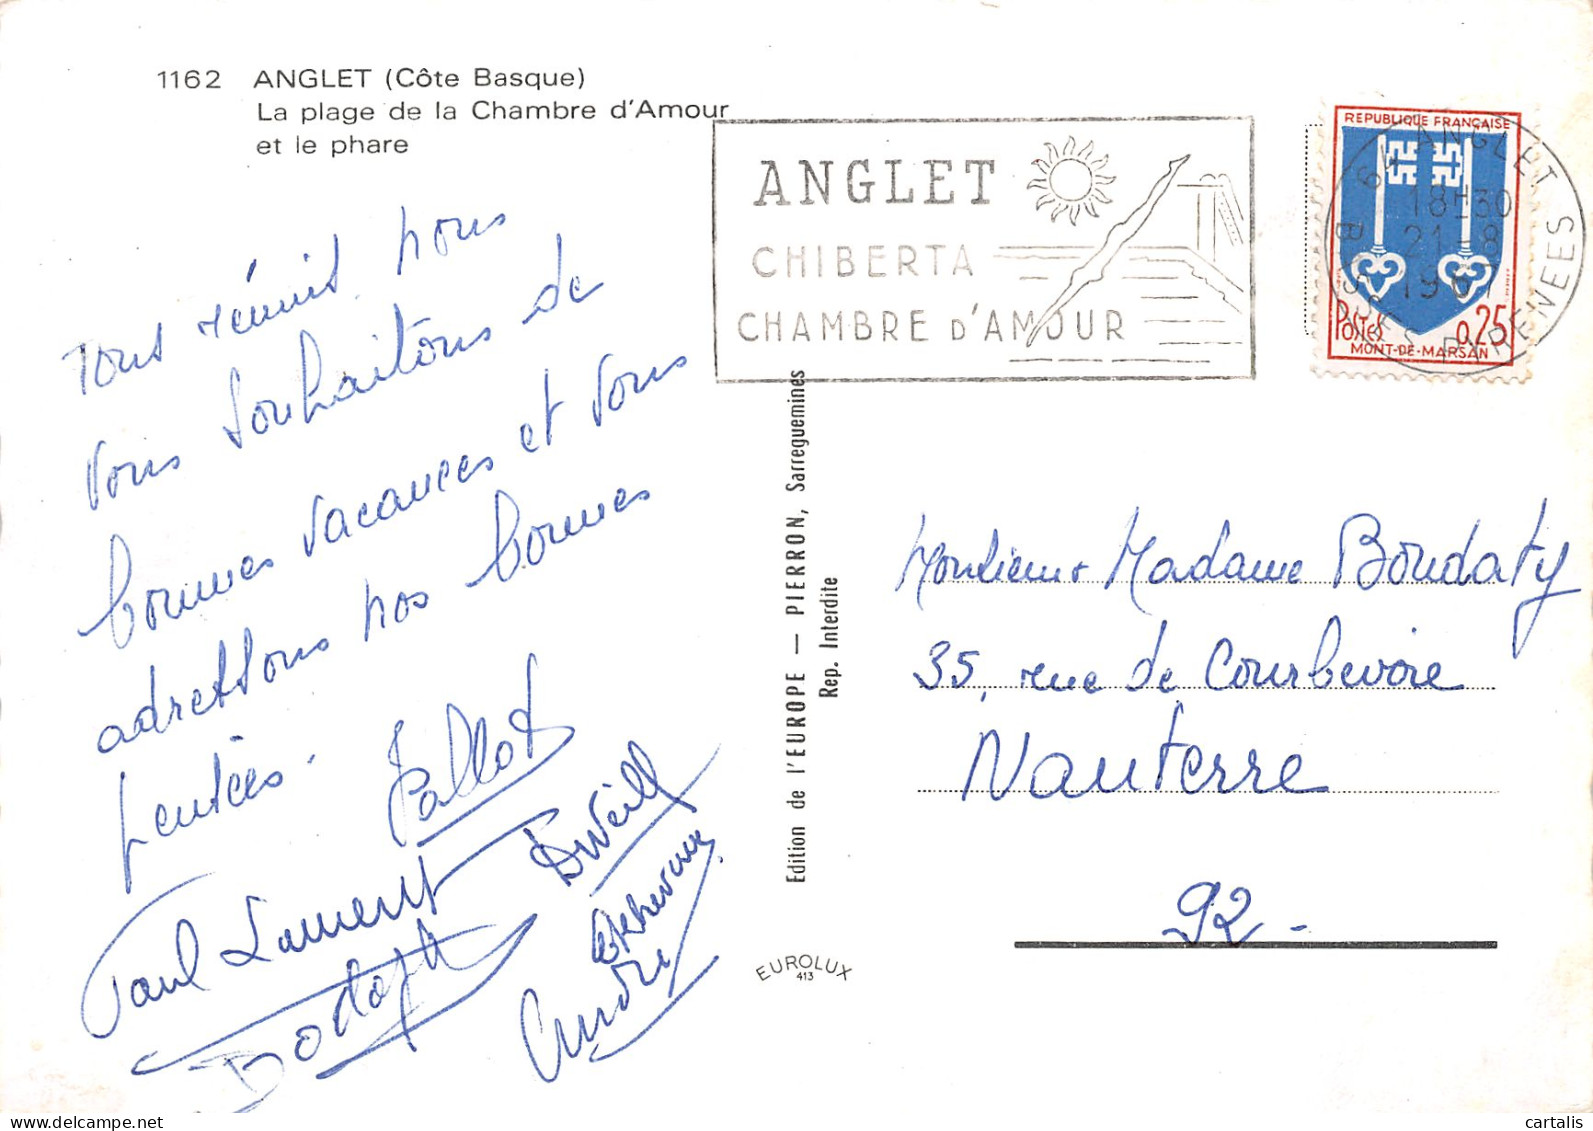 1162 ANGLET (Côte Basque)
La plage de la Chambre d'Amour
et le phare
ANGLET
CHIBERTA
CHAMBRE D'AMOUR
REPUBLIQUE FRANÇAISE
POSTES 0,25
MONT-DE-MARSAN
64 ANGLET
18H30
21-8
1967
BSSES PYRENEES
Tous réunis nous
vous souhaitons de
bonnes vacances et vous
adressons nos bonnes
pensées.
Paul Laurent
André
Edition de l'EUROPE — PIERRON, Sarreguemines
Rep. Interdite
EUROLUX
413
Monsieur Madame Boudaty
35, rue de Courbevoie
Nanterre
92 -
cartalis